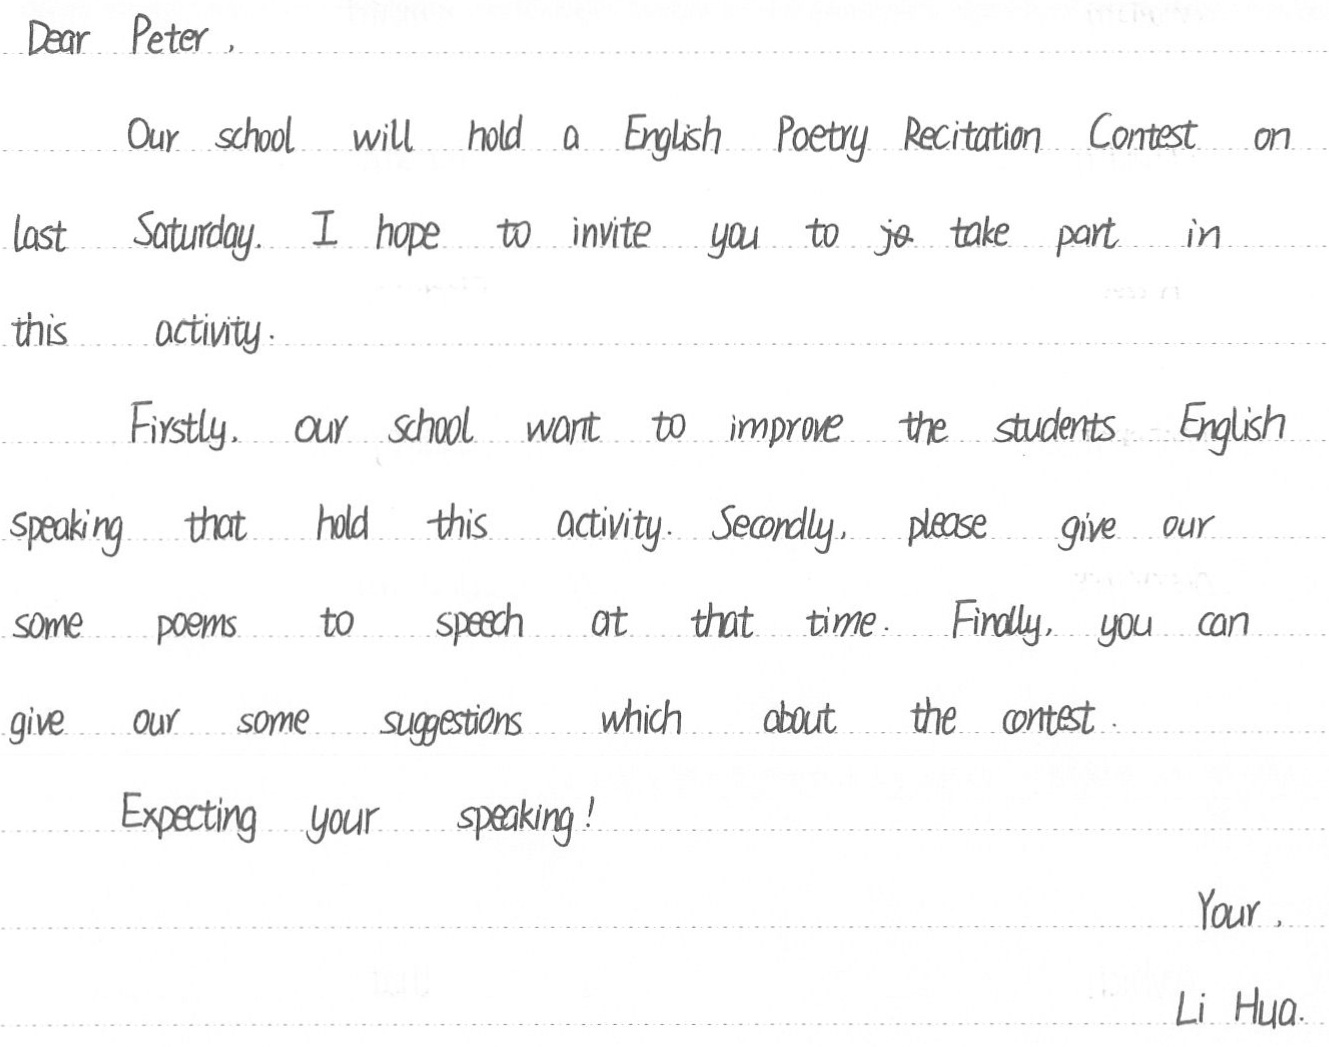 Dear Peter,
Our school will hold a English Poetry Recitation Contest on
last Saturday. I hope to invite you to take part in
this activity.
Firstly, our school want to improve the students English
speaking that hold this activity. Secondly, please give our
some poems to speech at that time. Finally, you can
give our some suggestions which about the contest.
Expecting your speaking!
Your,
Li Hua.